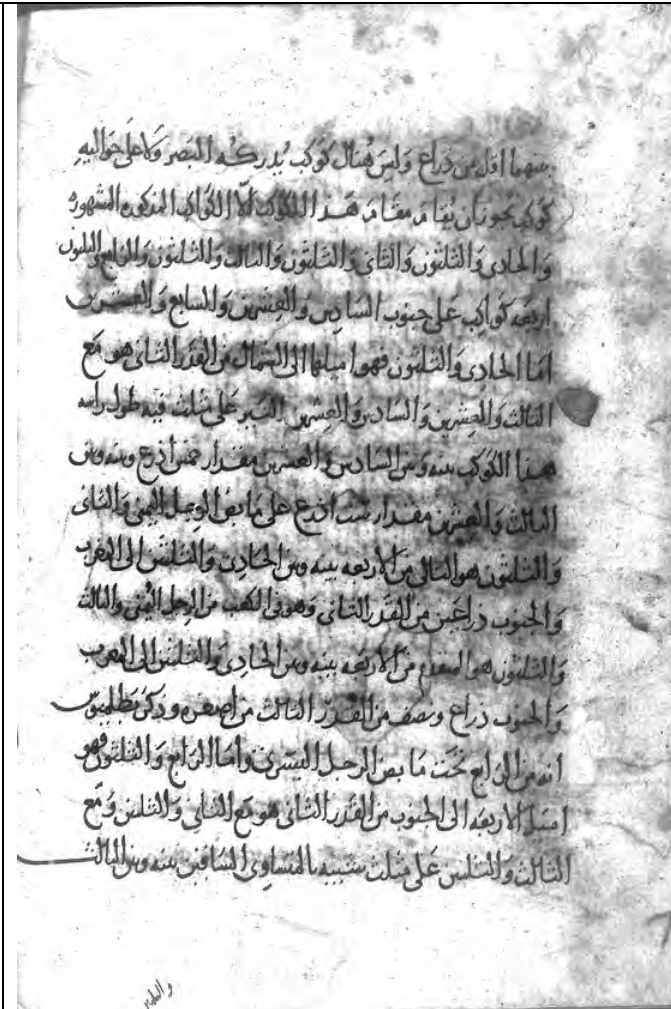 بينهما اقل من ذراع وليس هناك كوكب يدركه البصر ولا على حواليه
كوكب يجوز ان يقام مقام هذا الكوكب الا الكواكب المذكوره المشهوره
والحادى والثلثون والثانى والثلثون والثالث والثلثون والرابع والثلثون
اربعه كواكب على جنوب السادس والعشرين والسابع والعشرين
اما الحادى والثلثون فهو اميلها الى الشمال من القدر الثانى هو مع
الثالث والعشرين والسادس والعشرين النير على مثلث فيه طول راسه
هذا الكوكب بينه وبين السادس والعشرين مقدار خمس اذرع وبينه وبين
الثالث والعشرين مقدار ست اذرع على مابض الرجل اليمنى والثانى
والثلثون هو التالى من الاربعه بينه وبين الحادى والثلثين الى المغرب
والجنوب ذراعين من القدر الثانى وهو فى الكعب من الرجل اليمنى والثالث
والثلثون هو المتقدم من الاربعه بينه وبين الحادى والثلثين الى المغرب
والجنوب ذراع ونصف من القدر الثالث من اصغره وذكر بطلميوس
انه من الرابع تحت مابض الرجل اليسرى واما الرابع والثلثون فهو
اميل الاربعه الى الجنوب من القدر الثانى هو مع الثانى والثلثين ومع
الثالث والثلثين على مثلث شبيه بالمتساوى الساقين بينه وبين الثالث
والثلثين